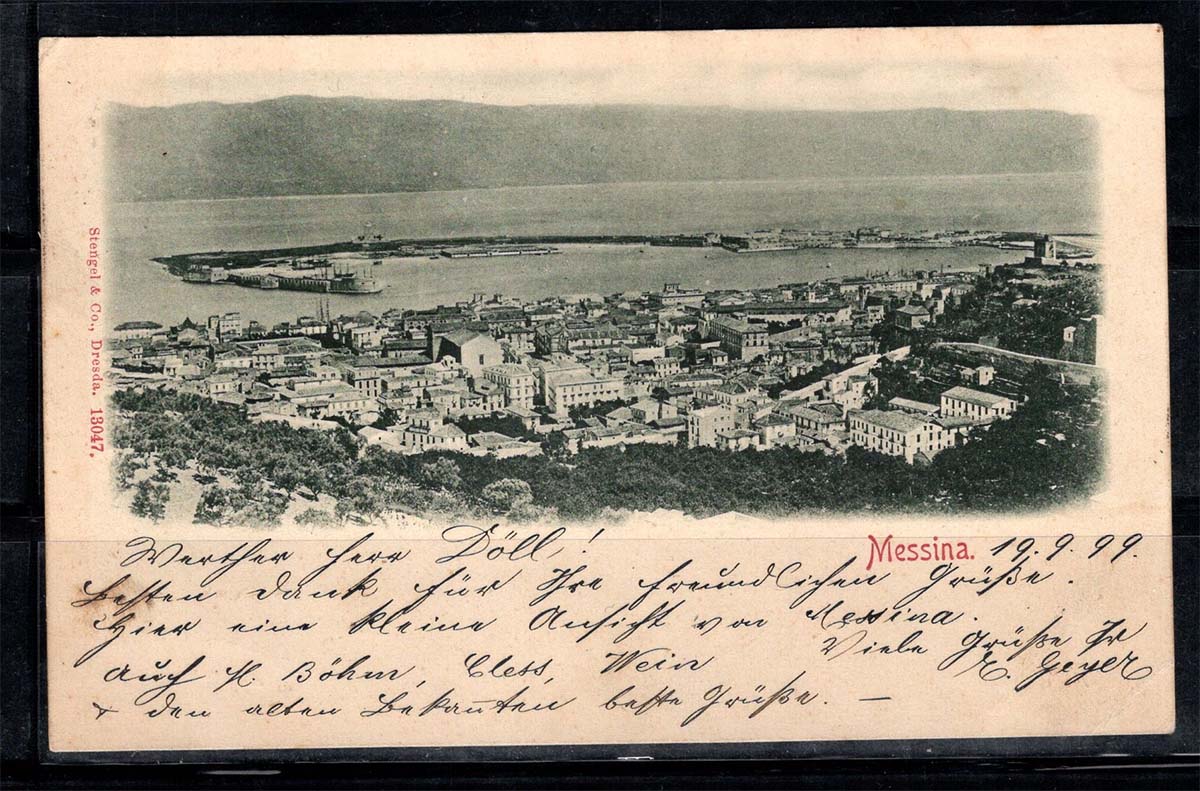 Stengel & Co., Dresda. 13047.
Messina. 19.9.99.
Werther Herr Döll!
Besten Dank für Ihre freundlichen Grüße.
Hier eine kleine Ansicht von Messina.
Viele Grüße Ihr
E. Geyer
Auch H. Böhm, Cless, Wein
& den alten Bekannten beste Grüße. —